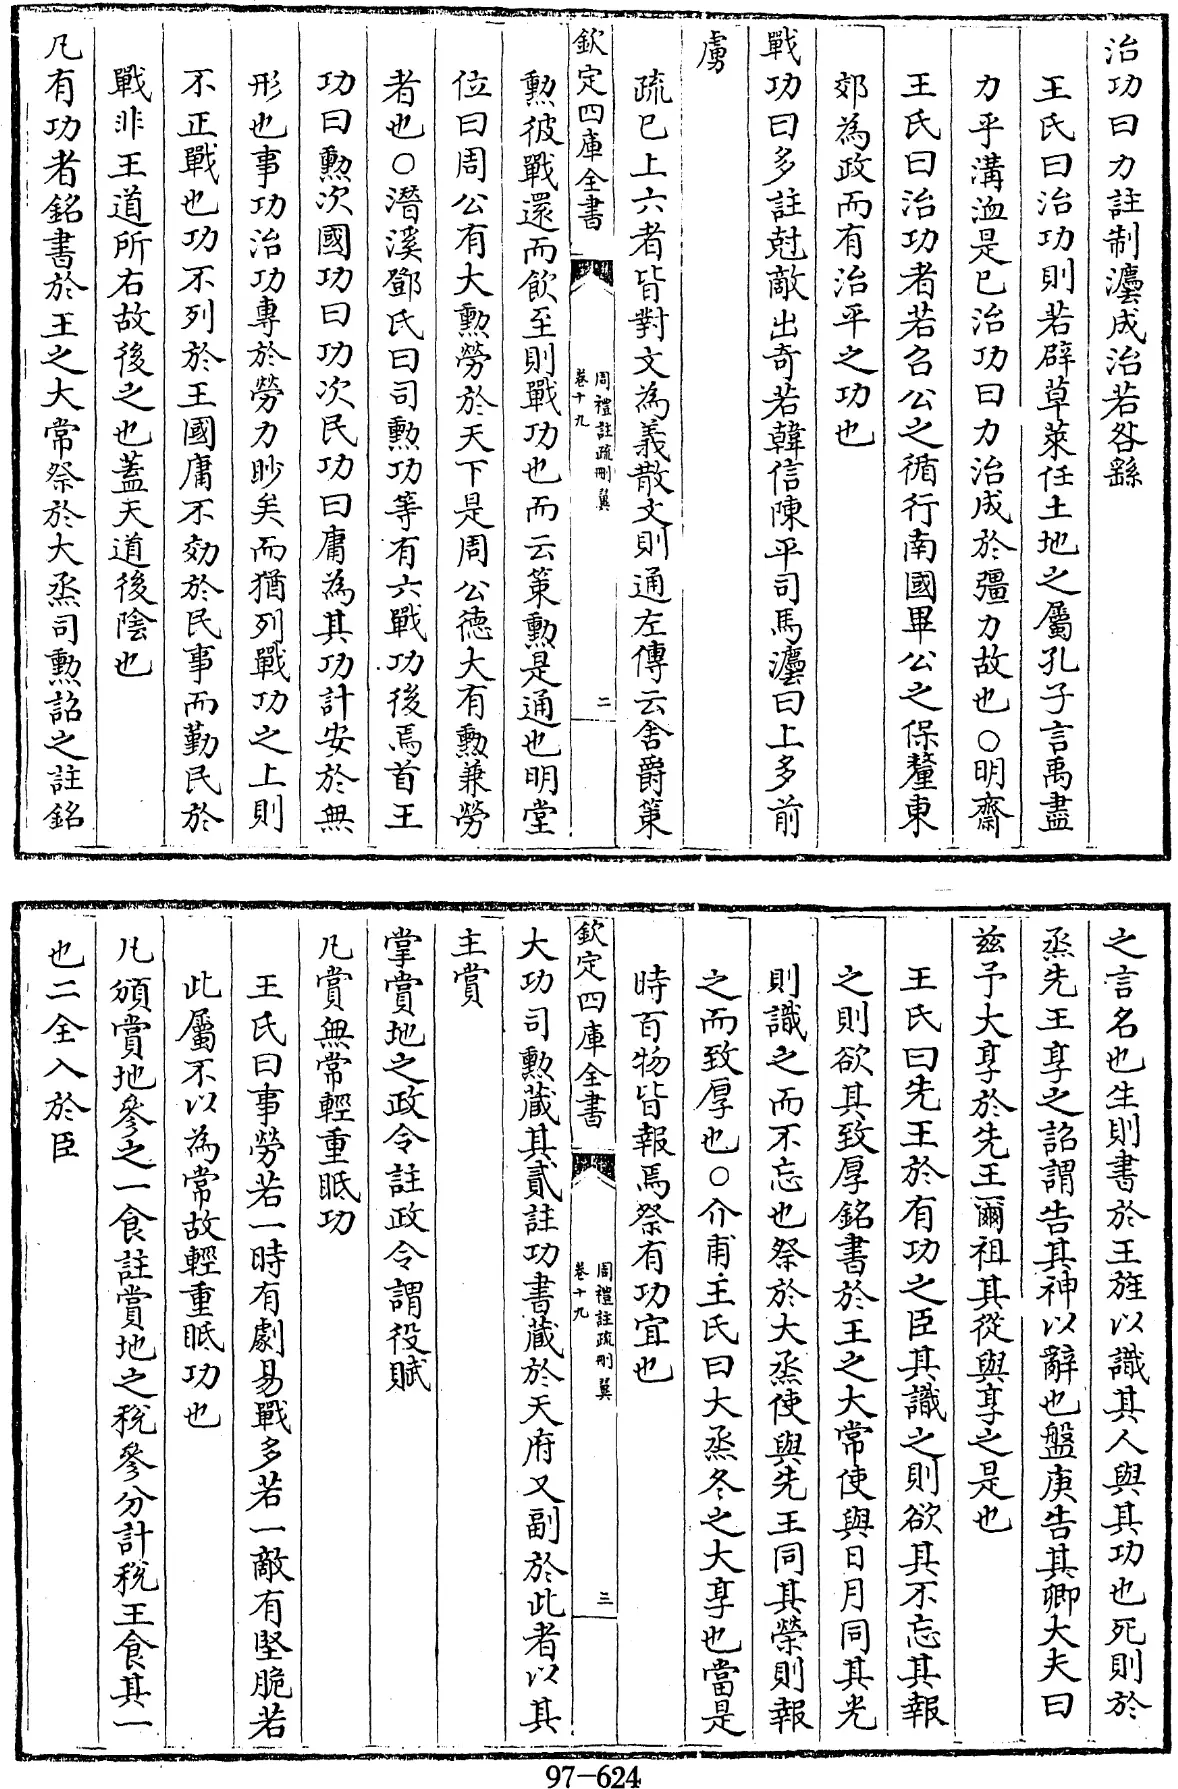 治功曰力註制灋成治若咎繇
王氏曰治功則若辟草萊任土地之屬孔子言禹盡
力乎溝洫是已治功曰力治成於彊力故也○明齋
王氏曰治功者若召公之循行南國畢公之保釐東
郊為政而有治平之功也
戰功曰多註尅敵出奇若韓信陳平司馬灋曰上多前
虜
疏已上六者皆對文為義散文則通左傳云舍爵策
欽定四庫全書
周禮註疏刪翼
卷十九
二
勲彼戰還而飲至則戰功也而云策勲是通也明堂
位曰周公有大勲勞於天下是周公徳大有勲兼勞
者也○潛溪鄧氏曰司勲功等有六戰功後焉首王
功曰勲次國功曰功次民功曰庸為其功計安於無
形也事功治功專於勞力眇矣而猶列戰功之上則
不正戰也功不列於王國庸不効於民事而勤民於
戰非王道所右故後之也蓋天道後陰也
凡有功者銘書於王之大常祭於大烝司勲詔之註銘
之言名也生則書於王旌以識其人與其功也死則於
烝先王享之詔謂告其神以辭也盤庚告其卿大夫曰
兹予大享於先王爾祖其從與享之是也
王氏曰先王於有功之臣其識之則欲其不忘其報
之則欲其致厚銘書於王之大常使與日月同其光
則識之而不忘也祭於大烝使與先王同其榮則報
之而致厚也○介甫王氏曰大烝冬之大享也當是
時百物皆報焉祭有功宜也
欽定四庫全書
周禮註疏刪翼
卷十九
三
大功司勲藏其貳註功書藏於天府又副於此者以其
主賞
掌賞地之政令註政令謂役賦
凡賞無常輕重眂功
王氏曰事勞若一時有劇易戰多若一敵有堅脆若
此屬不以為常故輕重眂功也
凡頒賞地參之一食註賞地之稅參分計稅王食其一
也二全入於臣
97-624